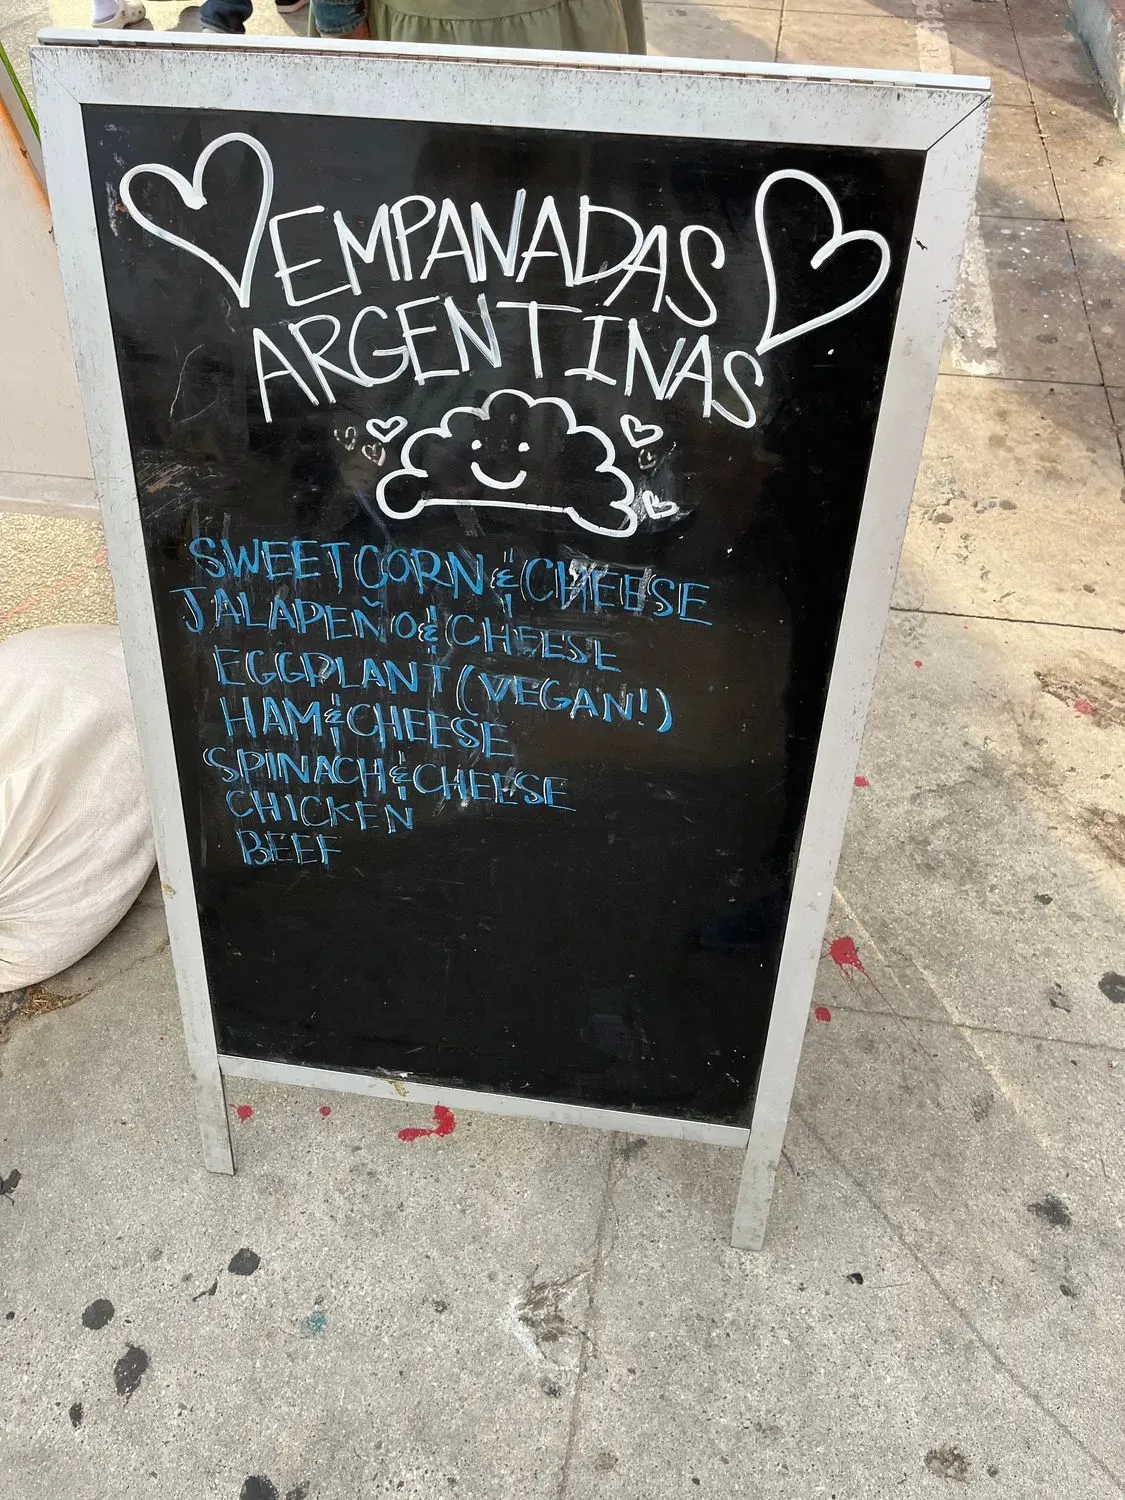 EMPANADAS
ARGENTINAS
SWEET CORN & CHEESE
JALAPEÑO & CHEESE
EGGPLANT (VEGAN!)
HAM & CHEESE
SPINACH & CHEESE
CHICKEN
BEEF